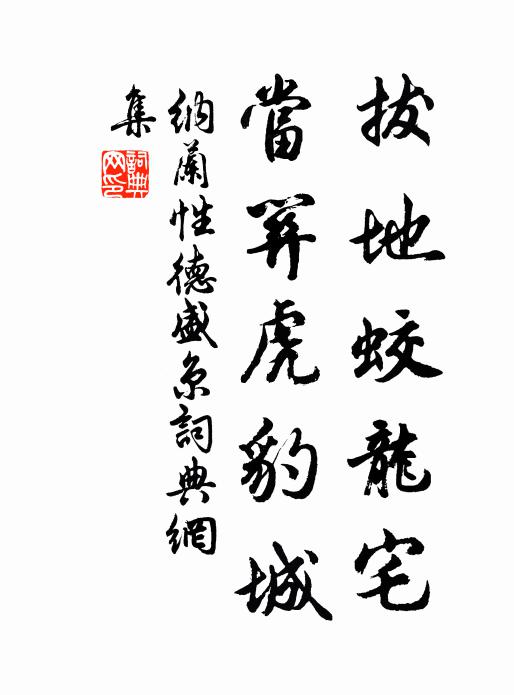 拔地蛟龍宅
當關虎豹城
納蘭性德盛京詞典網
集
詞典
网印